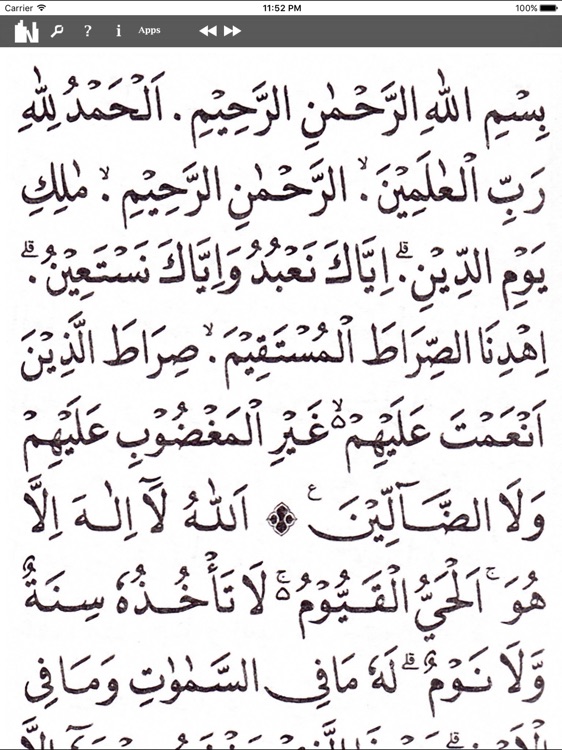 Carrier 11:52 PM 100%
? i Apps
بِسْمِ اللّٰهِ الرَّحْمٰنِ الرَّحِيْمِ . اَلْحَمْدُ لِلّٰهِ
رَبِّ الْعٰلَمِيْنَ ۙ . الرَّحْمٰنِ الرَّحِيْمِ ۙ . مٰلِكِ
يَوْمِ الدِّيْنِ ۗ . اِيَّاكَ نَعْبُدُ وَاِيَّاكَ نَسْتَعِيْنُ ۗ .
اِهْدِنَا الصِّرَاطَ الْمُسْتَقِيْمَ ۙ . صِرَاطَ الَّذِيْنَ
اَنْعَمْتَ عَلَيْهِمْ ۙ۵ غَيْرِ الْمَغْضُوْبِ عَلَيْهِمْ
وَلَا الضَّآلِّيْنَ ع اَللّٰهُ لَآ اِلٰهَ اِلَّا
هُوَ ۚ اَلْحَيُّ الْقَيُّوْمُ ۚ۵ لَا تَأْخُذُهٗ سِنَةٌ
وَّلَا نَوْمٌ ۗ لَهٗ مَا فِى السَّمٰوٰتِ وَمَا فِى